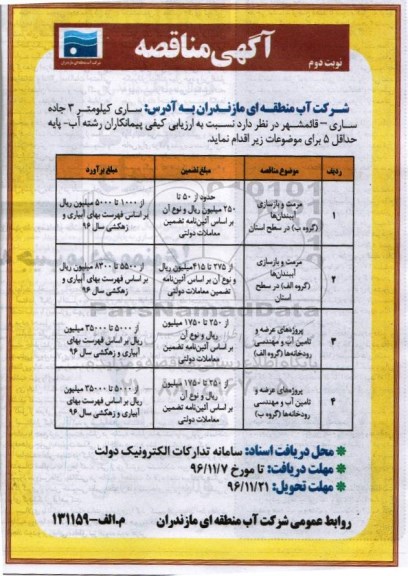 آگهی مناقصه
نوبت دوم
شرکت آب منطقه ای مازندران
شرکت آب منطقه ای مازندران به آدرس: ساری کیلومتر ۳ جاده
ساری – قائمشهر در نظر دارد نسبت به ارزیابی کیفی پیمانکاران رشته آب- پایه
حداقل ۵ برای موضوعات زیر اقدام نماید.
ردیف موضوع مناقصه مبلغ تضمین مبلغ برآورد
۱
مرمت و بازسازی
آببندان‌ها
(گروه ب) در سطح استان
حدود از ۵۰ تا
۲۵۰ میلیون ریال و نوع آن
بر اساس آئین‌نامه تضمین
معاملات دولتی
از ۱۰۰۰ تا ۵۰۰۰ میلیون ریال
بر اساس فهرست بهای آبیاری و
زهکشی سال ۹۶
۲
مرمت و بازسازی
آببندان‌ها
(گروه الف) در سطح
استان
از ۲۷۵ تا ۴۱۵ میلیون ریال
و نوع آن بر اساس آئین‌نامه
تضمین معاملات دولتی
از ۵۵۰۰ تا ۸۳۰۰ میلیون ریال
بر اساس فهرست بهای آبیاری و
زهکشی سال ۹۶
۳
پروژه‌های عرضه و
تامین آب و مهندسی
رودخانه‌ها (گروه الف)
از ۲۵۰ تا ۱۷۵۰ میلیون
ریال و نوع آن
بر اساس آئین‌نامه تضمین
معاملات دولتی
از ۵۰۰۰ تا ۳۵۰۰۰ میلیون
ریال بر اساس فهرست بهای
آبیاری و زهکشی سال ۹۶
۴
پروژه‌های عرضه و
تامین آب و مهندسی
رودخانه‌ها (گروه ب)
از ۲۵۰ تا ۱۷۵۰ میلیون
ریال و نوع آن
بر اساس آئین‌نامه تضمین
معاملات دولتی
از ۵۰۰۰ تا ۳۵۰۰۰ میلیون
ریال بر اساس فهرست بهای
آبیاری و زهکشی سال ۹۶
ParsNamadData
محل دریافت اسناد: سامانه تدارکات الکترونیک دولت
مهلت دریافت: تا مورخ ۹۶/۱۱/۷
مهلت تحویل: ۹۶/۱۱/۲۱
روابط عمومی شرکت آب منطقه ای مازندران م.الف-۱۳۱۱۵۹